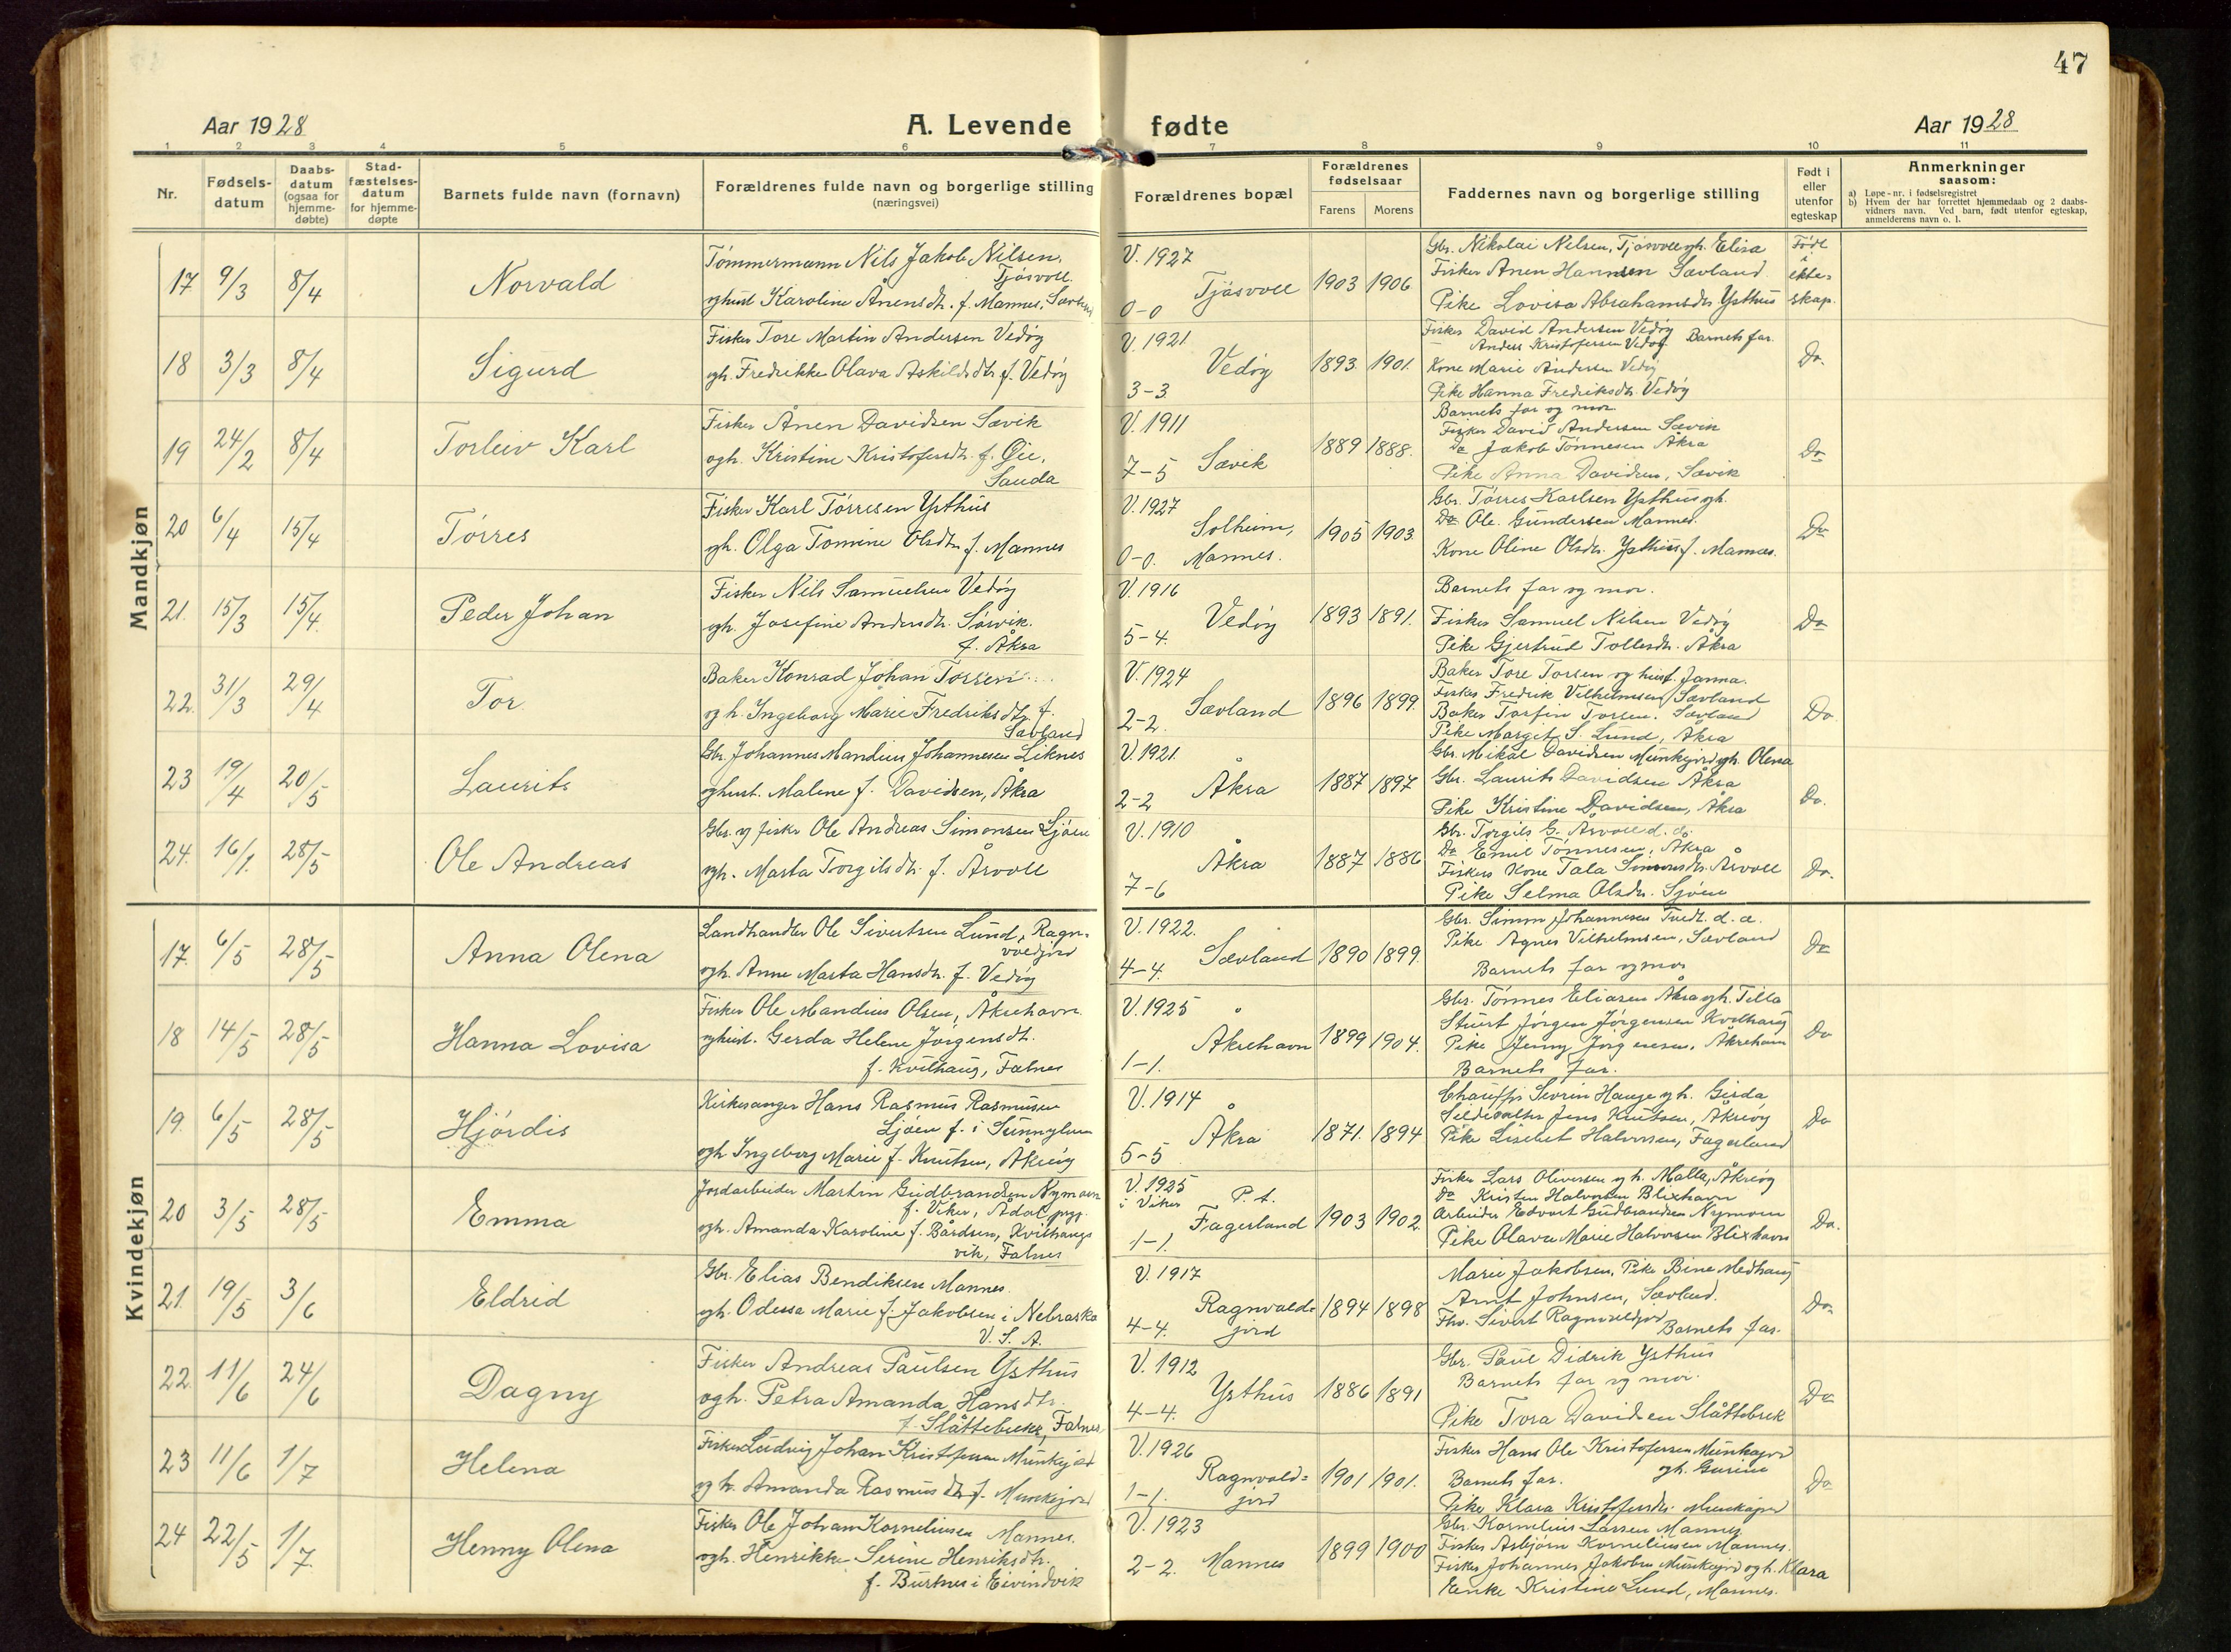 47
Aar 1928
A. Levende fødte
Aar 1928
1 2 3 4 5 6 7 8 9 10 11
Nr.
Fødselsdatum
Daabsdatum (ogsaa for hjemmedøbte)
Stadfæstelsesdatum for hjemmedøpte
Barnets fulde navn (fornavn)
Forældrenes fulde navn og borgerlige stilling
(næringsvei)
Forældrenes bopæl
Forældrenes fødselsaar
Farens
Morens
Faddernes navn og borgerlige stilling
Født i eller utenfor egteskap
Anmerkninger
saasom:
a) Løpe-nr. i fødselsregistret
b) Hvem der har forrettet hjemmedaab og 2 daabsvidners navn. Ved barn, født utenfor egteskap, anmelderens navn o. l.
Mandkjøn
17 9/3 8/4 Norvald
Tømmermann Nils Jakob Nilsen,
Tjøsvoll
oghust Karoline Ånensdtr. f. Mannes,
V. 1927
Tjøsvoll
0-0
1903 1906
Gbr. Nikolai Nilsen, Tjøsvoll ogh. Elisa
Fisker Anen Hannsen Sævland
Pike Lovisa Abrahamsdtr Ysthus
Født i ekteskap.
18 3/3 8/4 Sigurd
Fisker Tore Martin Andersen Vedøy
ogh. Fredrikke Olava Askildsdtr f. Vedøy
V. 1921
Vedøy
3-3
1893 1901
Fisker David Andersen Vedøy
Anders Kristofersen Vedøy. Barnets far.
Kone Marie Andersen Vedøy
Pike Hanna Fredriksdtr. Vedøy
Do.
19 24/2 8/4 Torleiv Karl
Fisker Ånen Davidsen Sævik
ogh. Kristine Kristofersdtr. f. Øie,
Sauda
V. 1911
Sævik
7-5
1889 1888.
Barnets far og mor.
Fisker David Andersen Sævik
Do Jakob Tønnesen Åkra
Pike Anna Davidsen, Sævik
Do
20 6/4 15/4 Tørres
Fisker Karl Tørresen Ysthus
ogh. Olga Tomine Olsdtr f. Mannes
V. 1927
Solheim,
0-0. Mannes.
1905 1903
Gbr. Tørres Karlsen Ysthus ogh.
Do Ole Gundersen Mannes.
Kone Oline Olsdtr. Ysthus f. Mannes.
Do
21. 15/3 15/4. Peder Johan
Fisker Nils Samuelsen Vedøy
ogh. Josefine Andersdtr. Sørvik.
f. Åkra
V. 1916
Vedøy
5-4.
1893 1891.
Barnets far og mor.
Fisker Samuel Nilsen Vedøy
Pike Gjertrud Tollesdtr. Åkra
Do
22. 31/3 29/4 Tor
Baker Konrad Johan Torsen
og h. Ingeborg Marie Fredriksdtr f.
Sævland
V. 1924
Sævland
2-2
1896 1899
Baker Tore Torsen og hust. Janna.
Fisker Fredrik Vilhelmsen Sævland
Baker Torfin Torsen. Sævland
Pike Margit S. Lund, Åkra
Do
23 19/4 20/5 Laurits
Gbr. Johannes Mandius Johannesen Liknes
oghust. Malene f. Davidsen, Åkra
V. 1921.
Åkra
2-2
1887 1897
Gbr. Mikal Davidsen Munkejord ogh. Olena
Gbr. Laurits Davidsen Åkra
Pike Kristine Davidsen, Åkra
Do.
24. 16/1. 28/5 Ole Andreas
Gbr. og fisker Ole Andreas Simonsen Sjøen
ogh. Marta Torgilsdtr. f. Årvoll
V. 1910
Åkra
7-6
1887 1886
Gbr. Torgils G. Årvoll d. d.
Do Emil Tønnesen, Åkra
Fiskers Kone Tala Simonsdtr. Årvoll
Pike Selma Olsdtr. Sjøen
Do.
Kvindekjøn
17. 6/5 28/5 Anna Olena
Landhandler Ole Sivertsen Lund, Ragnvaldjord
ogh. Anne Marta Hansdtr. f. Vedøy
V. 1922.
Sævland
4-4.
1890 1899
Gbr. Simon Johannesen d. a.
Pike Agnes Vilhelmsen, Sævland
Barnets far og mor
Do
18 14/5 28/5 Hanna Lovisa
Fisker Ole Mandius Olsen, Åkrehavn
oghust. Gerda Helene Jørgensdtr.
f. Kvilhaug, Falnes
V. 1925
Åkrehavn
1-1.
1899 1904.
Gbr. Tønnes Eliasen Åkra ogh. Tilla
Stuert Jørgen Jørgensen Kvilhaug
Pike Jenny Jørgensen, Åkrehavn
Barnets far.
Do
19. 6/5 28/5 Hjørdis
Kirkesanger Hans Rasmus Rasmussen
Ljøen f. i Sunnylven
ogh Ingeborg Marie f. Knutsen, Åkreøy
V. 1914
Åkra
5-5
1871. 1894
Chauffør Sevrin Hauge ogh. Gerda
Sildesalter Jens Knutsen, Åkreøy
Pike Lisebet Halvorsen, Fagerland
Do
20 3/5 28/5 Emma
Jordarbeider Martin Gudbrandsen Nymoen
f. Viker, Ådal prgj.
ogh. Amanda Karoline f. Bårdsen, Kvilhaugsvik, Falnes
V. 1925
i Viker P. t.
Fagerland
1-1.
1903 1902
Fisker Lars Oliversen og h. Malla, Åkreøy
Do Kristen Halvorsen Blixhavn
Arbeider Edvart Gudbrandsen Nymoen
Pike Olava Marie Halvorsen Blixhavn
Do.
21. 19/5 3/6 Eldrid
Gbr. Elias Bendiksen Mannes.
ogh. Odessa Marie f. Jakobsen i Nebraska
U. S. A.
V. 1917
Ragnvaldjord
4-4.
1894 1898
Marie Jakobsen, Pike Bine Medhaug
Arnt Johnsen, Sævland.
Fhv. Sivert Ragnvaldjord
Barnets far.
Do
22. 11/6 24/6 Dagny
Fisker Andreas Paulsen Ysthus
ogh. Petra Amanda Hansdtr.
f. Slåttebrekk, Falnes
V. 1912
Ysthus
4-4.
1886 1891
Gbr. Paul Didrik Ysthus
Barnets far og mor.
Pike Tora Davidsen Slåttebrek
Do
23 11/6 1/7 Helena
Fisker Ludvig Johan Kristofersen Munkejord
og h. Amanda Rasmusdtr f. Munkejord
V. 1926
Ragnvaldjord
1-1.
1901 1901.
Fisker Hans Ole Kristofersen Munkejord
ogh. Gurine
Barnets far.
Pike Klara Kristofersdtr. Munkejord
Do
24 22/5 1/7. Henny Olena
Fisker Ole Johan Korneliussen Mannes.
ogh. Henrikke Serine Henriksdtr.
f. Burtnes i Eivindvik
V. 1923
2-2. Mannes
1899 1900
Gbr. Kornelius Larsen Mannes
Fisker Asbjørn Korneliussen Mannes.
Fisker Johannes Jakobsen Munkejord og h. Klara
Enke Kristine Lund, Mannes.